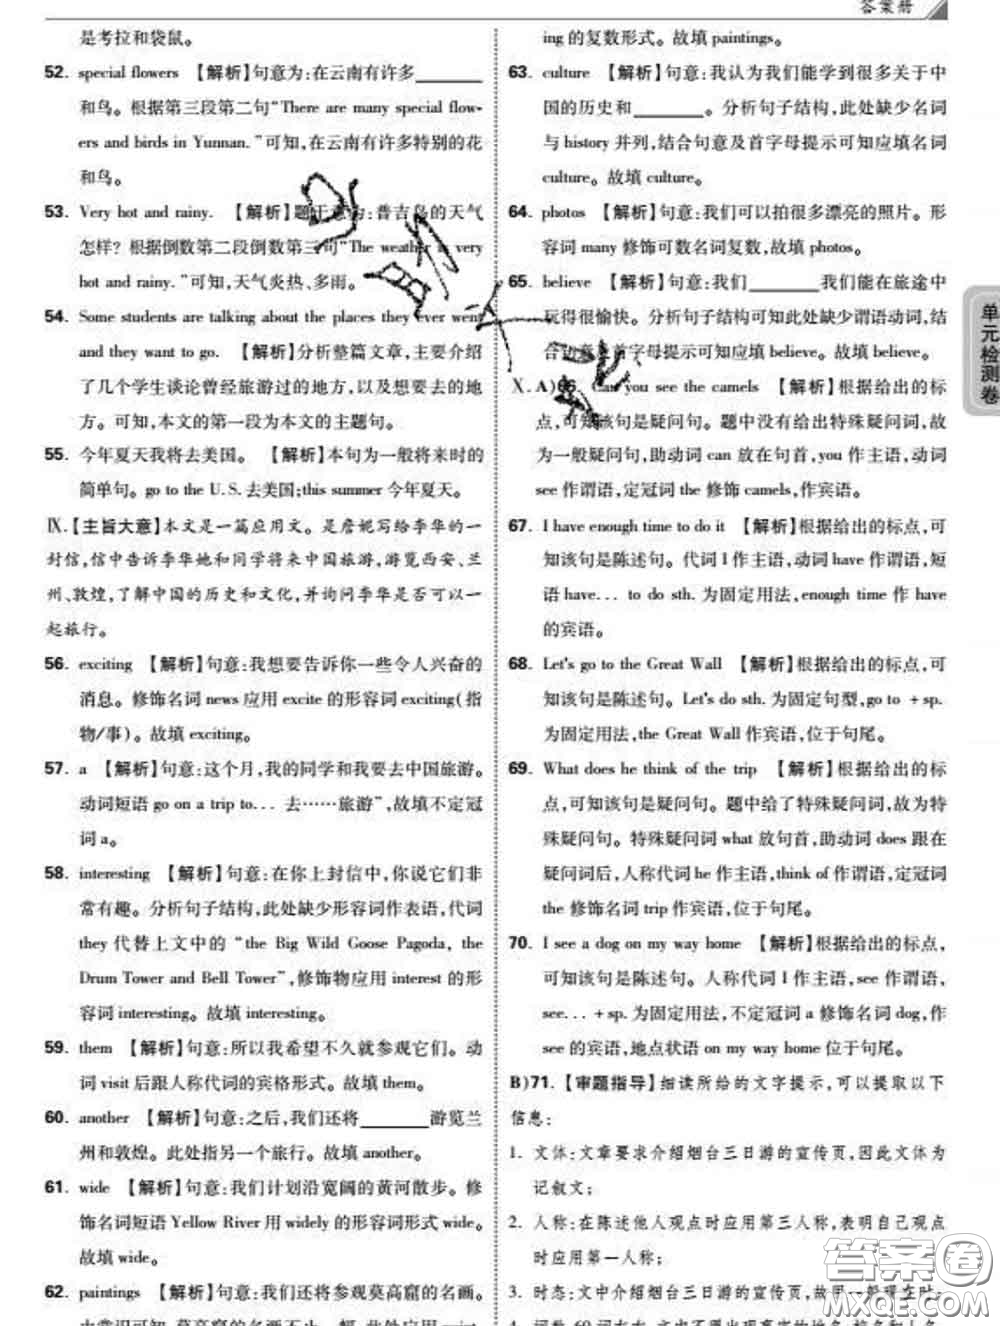 答案册
是考拉和袋鼠。
52. special flowers 【解析】句意为:在云南有许多________
和鸟。根据第三段第二句“There are many special flow-
ers and birds in Yunnan.”可知,在云南有许多特别的花
和鸟。
53. Very hot and rainy. 【解析】题干意为:普吉岛的天气
怎样? 根据倒数第二段倒数第三句“The weather is very
hot and rainy.”可知,天气炎热、多雨。
54. Some students are talking about the places they ever went
and they want to go. 【解析】分析整篇文章,主要介绍
了几个学生谈论曾经旅游过的地方,以及想要去的地
方。可知,本文的第一段为本文的主题句。
55. 今年夏天我将去美国。 【解析】本句为一般将来时的
简单句。go to the U. S. 去美国;this summer 今年夏天。
Ⅸ.【主旨大意】本文是一篇应用文。是詹妮写给李华的一
封信,信中告诉李华她和同学将来中国旅游,游览西安、兰
州、敦煌,了解中国的历史和文化,并询问李华是否可以一
起旅行。
56. exciting 【解析】句意:我想要告诉你一些令人兴奋的
消息。修饰名词 news 应用 excite 的形容词 exciting(指
物/事)。故填 exciting。
57. a 【解析】句意:这个月,我的同学和我要去中国旅游。
动词短语 go on a trip to… 去……旅游”,故填不定冠
词 a。
58. interesting 【解析】句意:在你上封信中,你说它们非
常有趣。分析句子结构,此处缺少形容词作表语,代词
they 代替上文中的 “the Big Wild Goose Pagoda, the
Drum Tower and Bell Tower”,修饰物应用 interest 的形
容词 interesting。故填 interesting。
59. them 【解析】句意:所以我希望不久就参观它们。动
词 visit 后跟人称代词的宾格形式。故填 them。
60. another 【解析】句意:之后,我们还将________游览兰
州和敦煌。此处指另一个旅行。故填 another。
61. wide 【解析】句意:我们计划沿宽阔的黄河散步。修
饰名词短语 Yellow River 用 widely 的形容词形式 wide。
故填 wide。
62. paintings 【解析】句意:我们还将参观莫高窟的名画。
ing 的复数形式。故填 paintings。
63. culture 【解析】句意:我认为我们能学到很多关于中
国的历史和________。分析句子结构,此处缺少名词
与 history 并列,结合句意及首字母提示可知应填名词
culture。故填 culture。
64. photos 【解析】句意:我们可以拍很多漂亮的照片。形
容词 many 修饰可数名词复数,故填 photos。
65. believe 【解析】句意:我们________我们能在旅途中
玩得很愉快。分析句子结构可知此处缺少谓语动词,结
合句意及首字母提示可知应填 believe。故填 believe。
Ⅹ. A)66. Can you see the camels 【解析】根据给出的标
点,可知该句是疑问句。题中没有给出特殊疑问词,故
为一般疑问句,助动词 can 放在句首,you 作主语,动词
see 作谓语,定冠词 the 修饰 camels,作宾语。
67. I have enough time to do it 【解析】根据给出的标点,可
知该句是陈述句。代词 I 作主语,动词 have 作谓语,短
语 have… to do sth. 为固定用法,enough time 作 have
的宾语。
68. Let's go to the Great Wall 【解析】根据给出的标点,可
知该句是陈述句。Let's do sth. 为固定句型,go to +sp.
为固定用法,the Great Wall 作宾语,位于句尾。
69. What does he think of the trip 【解析】根据给出的标
点,可知该句是疑问句。题中给了特殊疑问词,故为特
殊疑问句。特殊疑问词 what 放句首,助动词 does 跟在
疑问词后,人称代词 he 作主语,think of 作谓语,定冠词
the 修饰名词 trip 作宾语,位于句尾。
70. I see a dog on my way home 【解析】根据给出的标点,
可知该句是陈述句。人称代词 I 作主语,see 作谓语,
see… +sp. 为固定用法,不定冠词 a 修饰名词 dog,作
see 的宾语,地点状语 on my way home 位于句尾。
B)71. 【审题指导】细读所给的文字提示,可以提取以下
信息:
1. 文体:文章要求介绍烟台三日游的宣传页,因此文体为
记叙文;
2. 人称:在陈述他人观点时应用第三人称,表明自己观点
时应用第一人称;
3. 时态:文中介绍烟台三日游的宣传页,故用一般现在时;
单元检测卷
答案圈
MXQE.COM